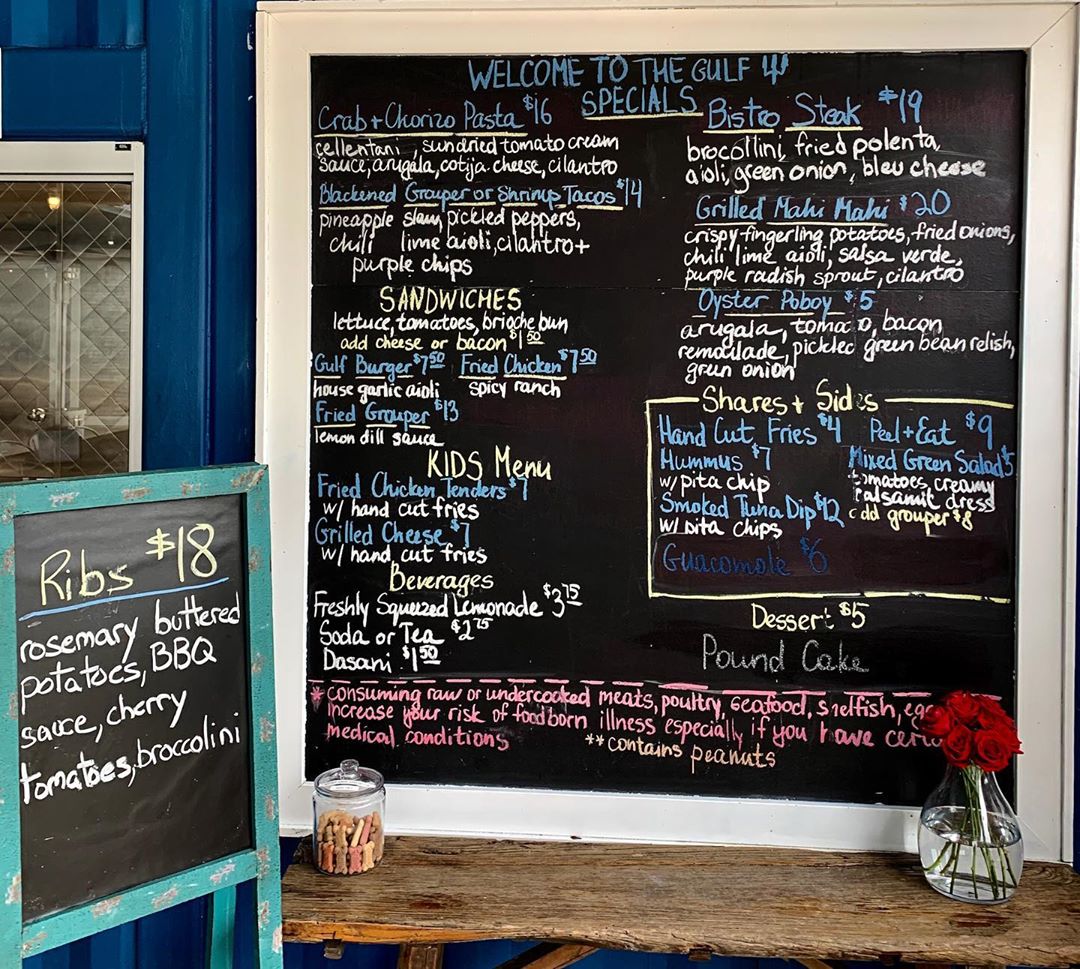 WELCOME TO THE GULF
SPECIALS
Crab + Chorizo Pasta $16
cellentani, sundried tomato cream
sauce, arugala, cotija cheese, cilantro
Blackened Grouper or Shrimp Tacos $14
pineapple slaw, pickled peppers,
chili lime aioli, cilantro +
purple chips
SANDWICHES
lettuce, tomatoes, brioche bun
add cheese or bacon $1.50
Gulf Burger $7.50 Fried Chicken $7.50
house garlic aioli spicy ranch
Fried Grouper $13
lemon dill sauce
KIDS Menu
Fried Chicken Tenders $7
w/ hand cut fries
Grilled Cheese $7
w/ hand cut fries
Beverages
Freshly Squeezed Lemonade $3.75
Soda or Tea $2.75
Dasani $1.50
Bistro Steak $19
brocollini, fried polenta,
aioli, green onion, bleu cheese
Grilled Mahi Mahi $20
crispy fingerling potatoes, fried onions,
chili lime aioli, salsa verde,
purple radish sprout, cilantro
Oyster Poboy
arugala, toma o, bacon
remoulade, pickled green bean relish,
green onion
Shares + Sides
Hand Cut Fries $4 Peel + Eat $9
Hummus $7 Mixed Green Salad $5
w/ pita chip tomatoes, creamy
Smoked Tuna Dip $12 balsamic dress
w/ pita chips add grouper $8
Guacomole $6
Dessert $5
Pound Cake
* consuming raw or undercooked meats, poultry, seafood, shelfish, egg
increase your risk of foodborn illness especially if you have certa
medical conditions **contains peanuts
Ribs $18
rosemary buttered
potatoes, BBQ
sauce, cherry
tomatoes, broccolini